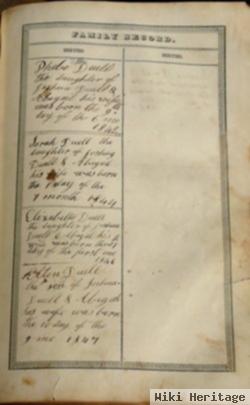 FAMILY RECORD.
BIRTHS. BIRTHS.
Phebe Duell
the daughter of
Joshua Duell &
Abigail his wife
was born the 9th
day of the 6 mo
Sarah Duell the
daughter of Joshua
Duell & Abigail
his wife was born
the day of the
9 month 1844
Elizabeth Duell
the daughter of Joshua
Duell & Abigail his
wife was born
day of the first mo
1846
Duell
the son of Joshua
Duell & Abigail
his wife was born
the 10 day of the
9 mo 1847
Wiki Heritage